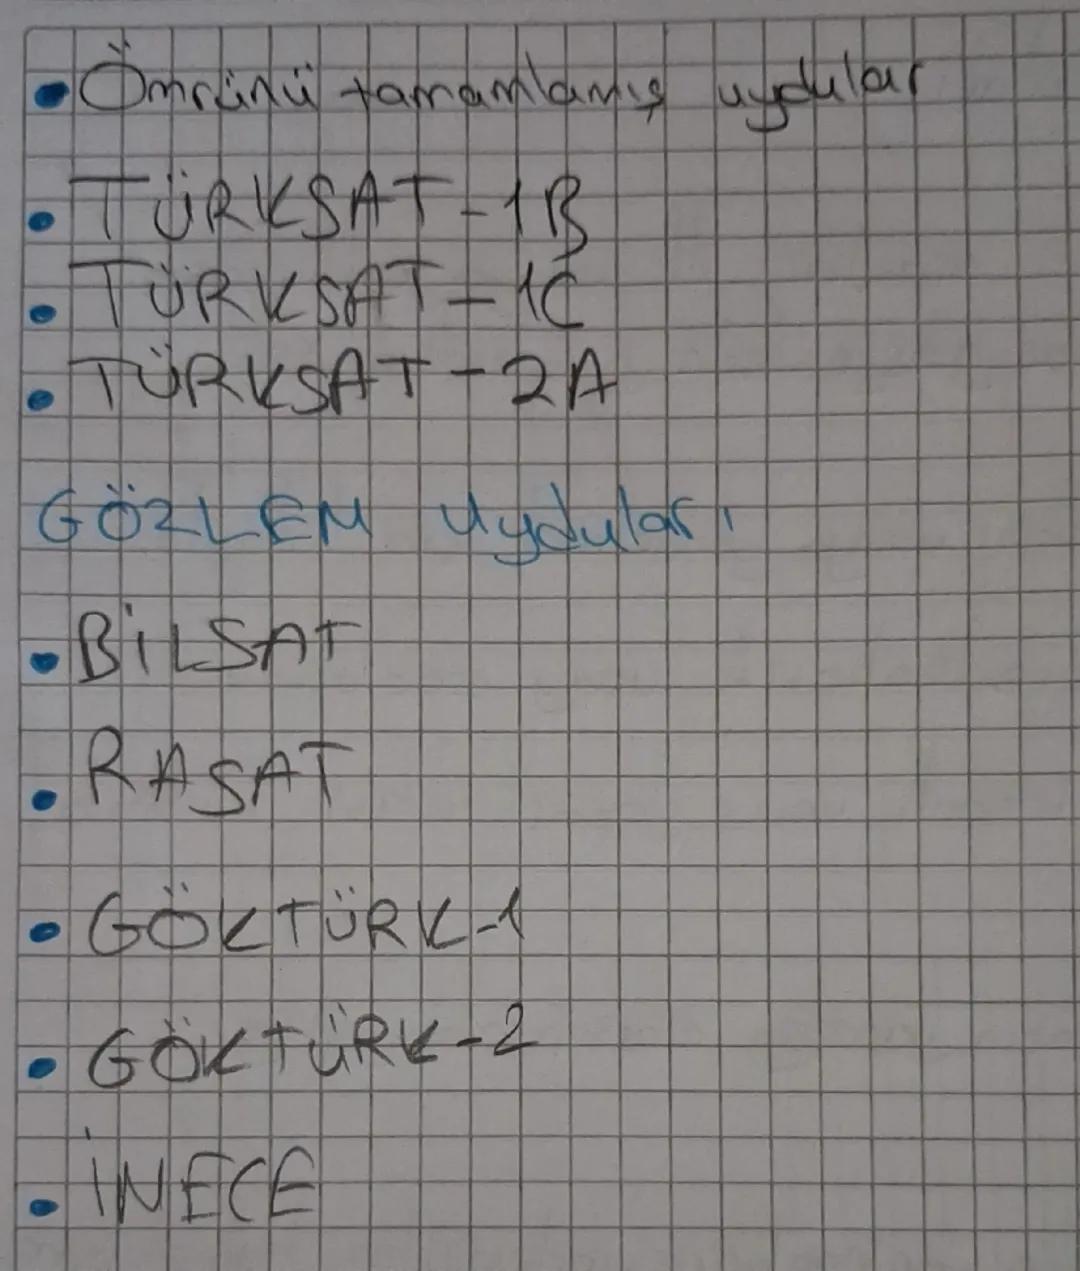 • Ömrünü tamamlamış uydular
• TÜRKSAT-1B
• TÜRKSAT-1C
• TÜRKSAT-2A
GÖZLEM Uyduları
• BİLSAT
• RASAT
• GÖKTÜRK-1
• GÖKTÜRK-2
• İNECE